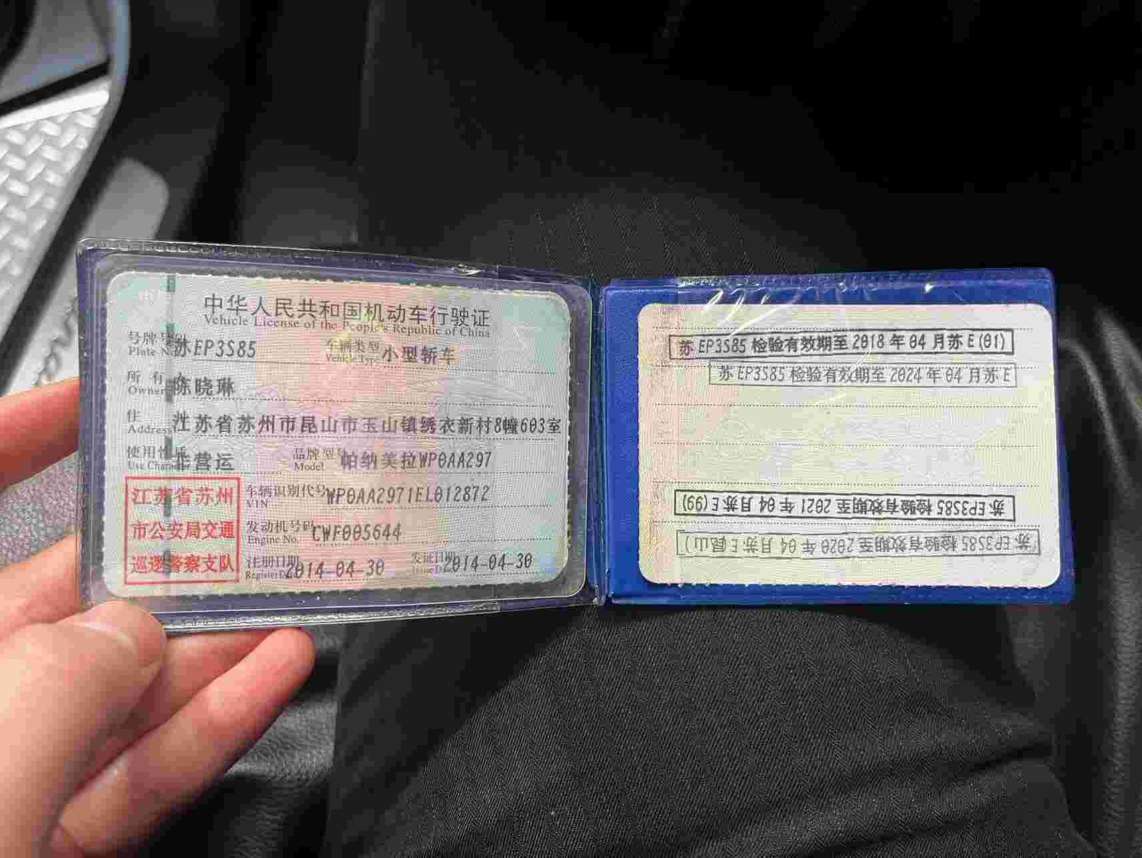 中华人民共和国机动车行驶证
Vehicle License of the People's Republic of China
号牌号码 苏EP3S85 车辆类型 小型轿车
Plate No. Vehicle Type
所有人 陈晓琳
Owner
住 江苏省苏州市昆山市玉山镇绣衣新村8幢603室
Address
使用性质 非营运 品牌型号 帕纳美拉WP0AA297
Use Character Model
江苏省苏州
市公安局交通
巡逻警察支队
车辆识别代号 WP0AA2971EL012872
VIN
发动机号码 CWF005644
Engine No.
注册日期 2014-04-30 发证日期 2014-04-30
Register Date Issue Date
苏EP3S85 检验有效期至 2018 年 04 月苏E(01)
苏EP3S85 检验有效期至 2024 年 04 月苏E
苏EP3S85 检验有效期至 2021 年 04 月苏E(99)
苏EP3S85 检验有效期至 2020 年 04 月苏E(昆山)